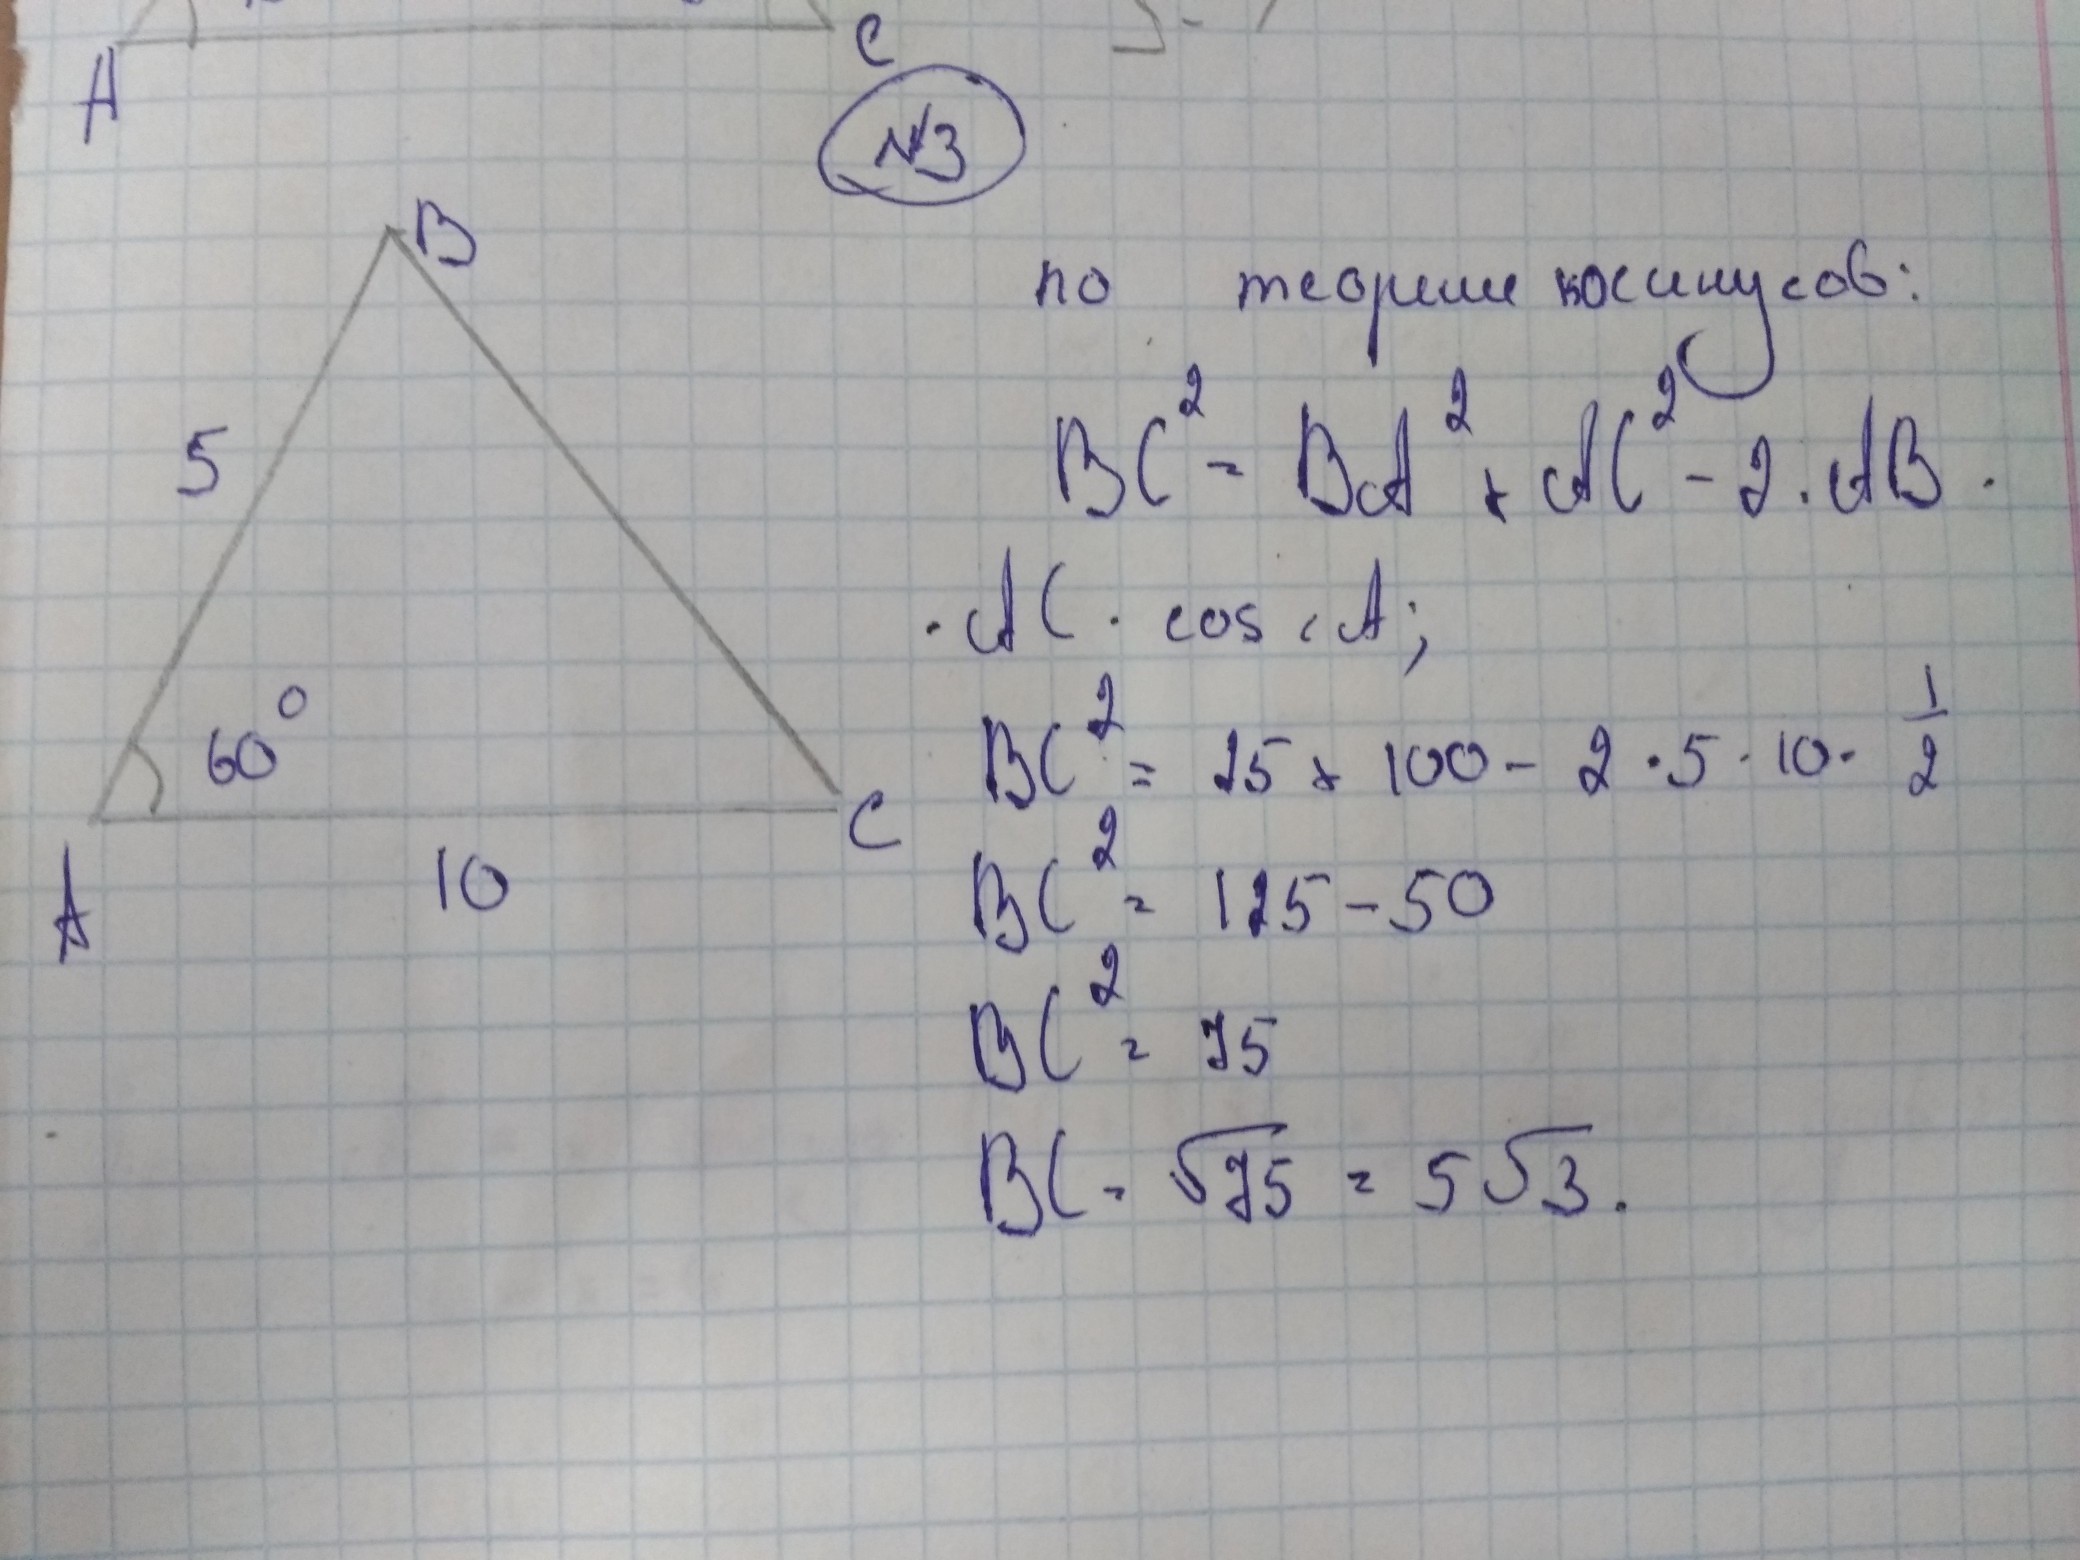 A
C
№3
B
по теореме косинусов:
5
BC² = BA² + AC² - 2 · AB ·
· AC · cos ∠A;
60°
BC² = 25 + 100 - 2 · 5 · 10 · 1/2
C
A
10
BC² = 125 - 50
BC² = 75
BC = √75 = 5√3.